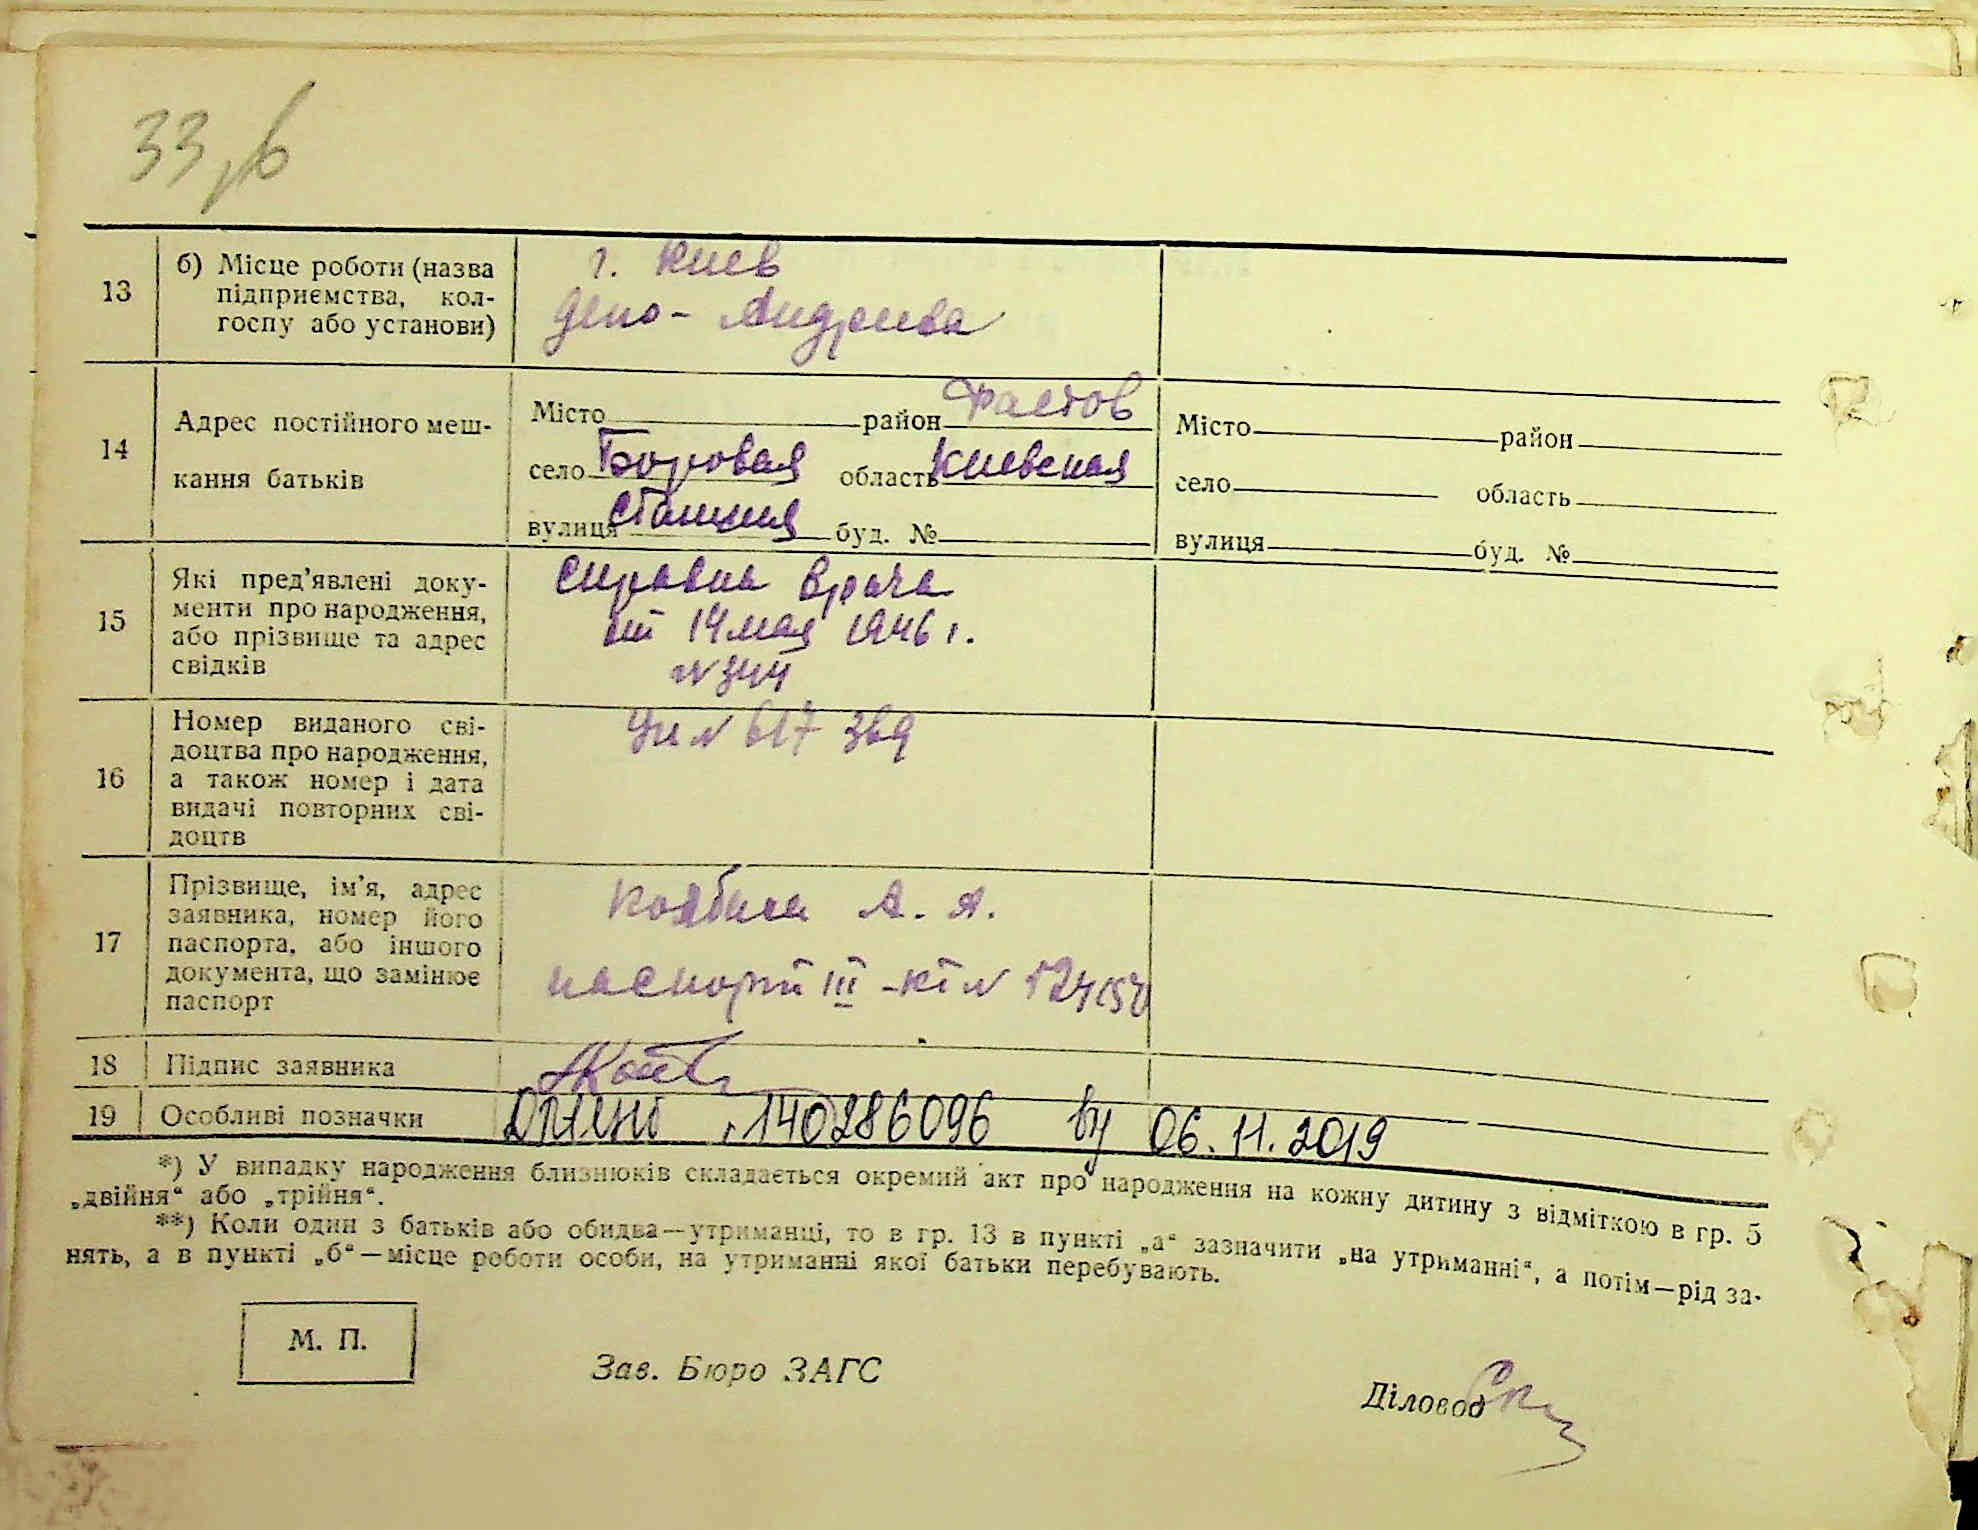 33
13
б) Місце роботи (назва
підприємства, кол-
госпу або установи)
г. Киев
депо - Андреева
14
Адрес постійного меш-
кання батьків
Місто район Фастов
село Боровая область Киевская
вулиця Станция буд. №
Місто район
село область
вулиця буд. №
15
Які пред'явлені доку-
менти про народження,
або прізвище та адрес
свідків
Справка врача
от 14 мая 1946 г.
№ 344
16
Номер виданого сві-
доцтва про народження,
а також номер і дата
видачі повторних сві-
доцтв
№ 617 369
17
Прізвище, ім'я, адрес
заявника, номер його
паспорта, або іншого
документа, що замінює
паспорт
А. Я.
паспорт III
18
Підпис заявника
19
Особливі позначки
140286096 06.11.2019
*) У випадку народження близнюків складається окремий акт про народження на кожну дитину з відміткою в гр. 5
„двійня“ або „трійня“.
**) Коли один з батьків або обидва—утриманці, то в гр. 13 в пункті „а“ зазначити „на утриманні“, а потім—рід за-
нять, а в пункті „б“—місце роботи особи, на утриманні якої батьки перебувають.
М. П.
Зав. Бюро ЗАГС
Діловод